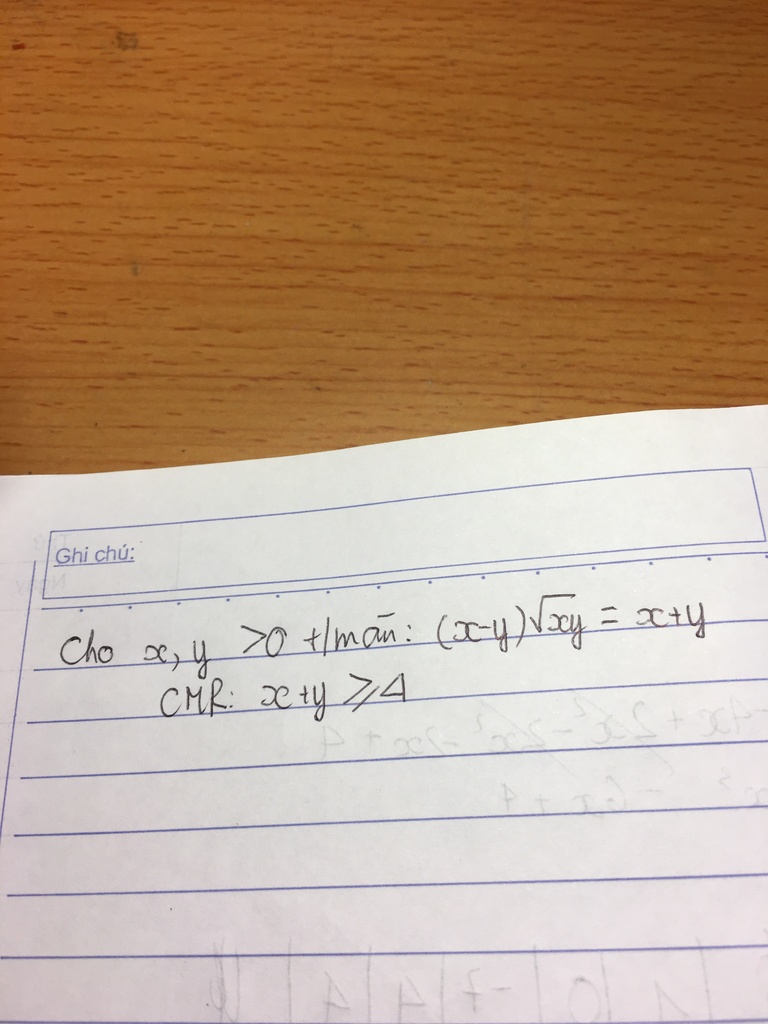 Ghi chú:
Cho x, y >0 t/mãn: (x-y)√xy = x+y
CMR: x+y ⩾4